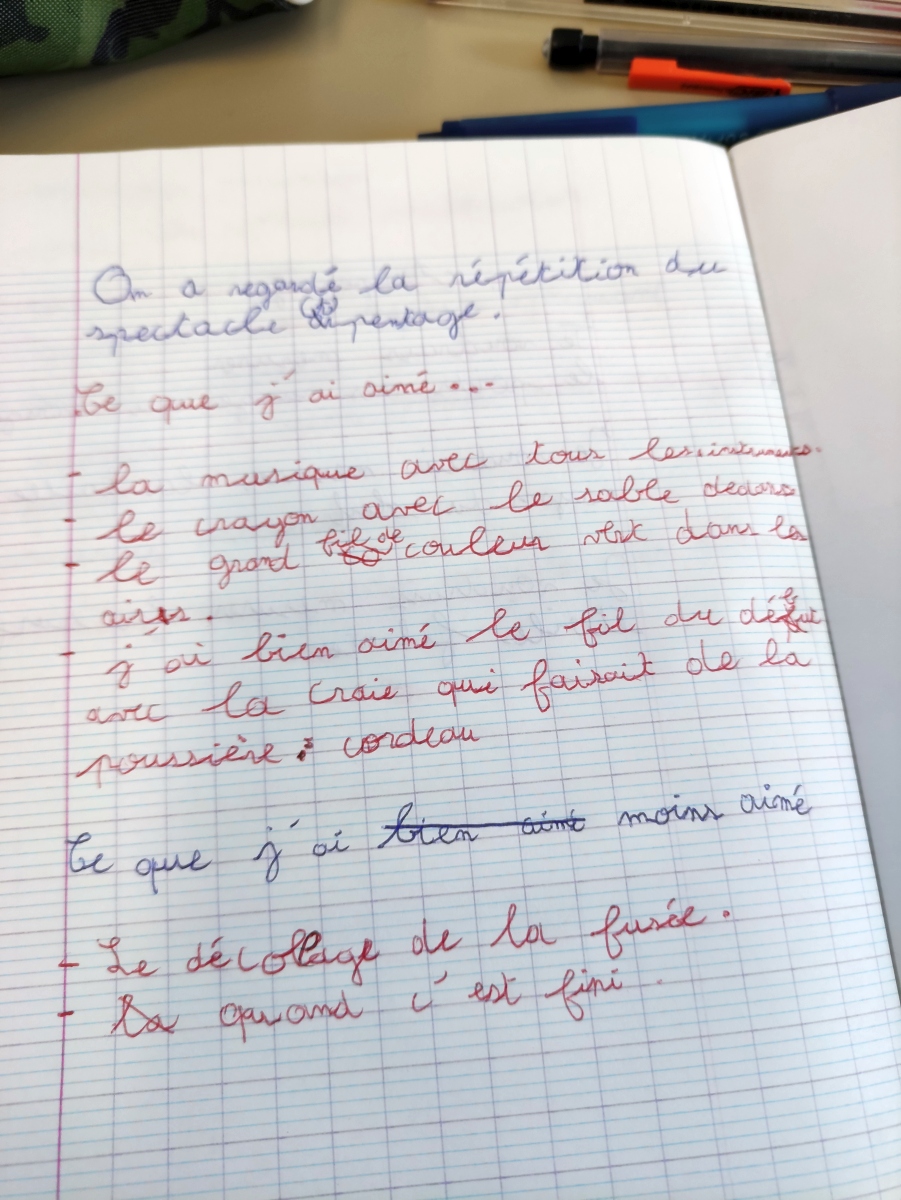 On a regardé la répétition du
spectacle arpentage.
Ce que j'ai aimé...
- la musique avec tous les instruments.
- le crayon avec le sable dedans
- le grand fil de couleur vert dans les
airs.
- j'ai bien aimé le fil du début
avec la craie qui faisait de la
poussière : cordeau
Ce que j'ai bien aimé moins aimé
- Le décollage de la fusée.
- quand c'est fini.